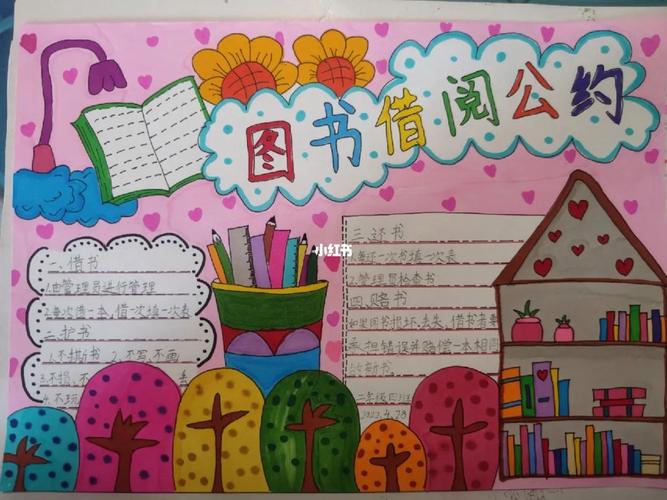 图书借阅公约
一、借书
1.由管理员进行管理
2.每次借一本,借一次填一次表
二、护书
1.不撕书 2.不写、不画
3.不损、不 丢
4.不玩
三、还书
1.每还一次书填一次表
2.管理员检查书
四、赔书
如果图书损坏、丢失,借书者要
承担错误并赔偿一本相同
的新书。
二年级四班
2022.4.28
小红书